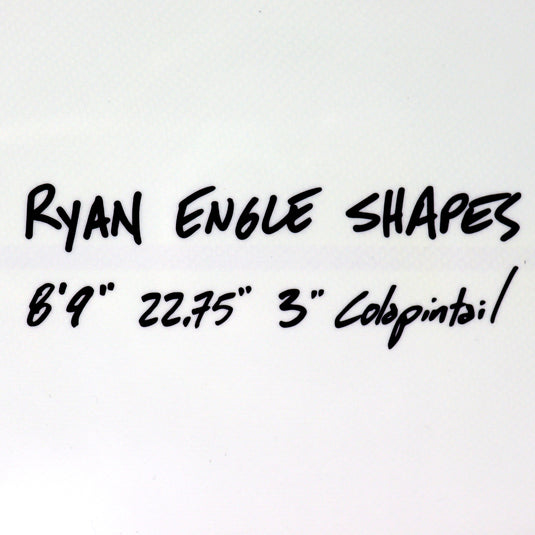 RYAN ENGLE SHAPES
8'9" 22.75" 3" Colapintail